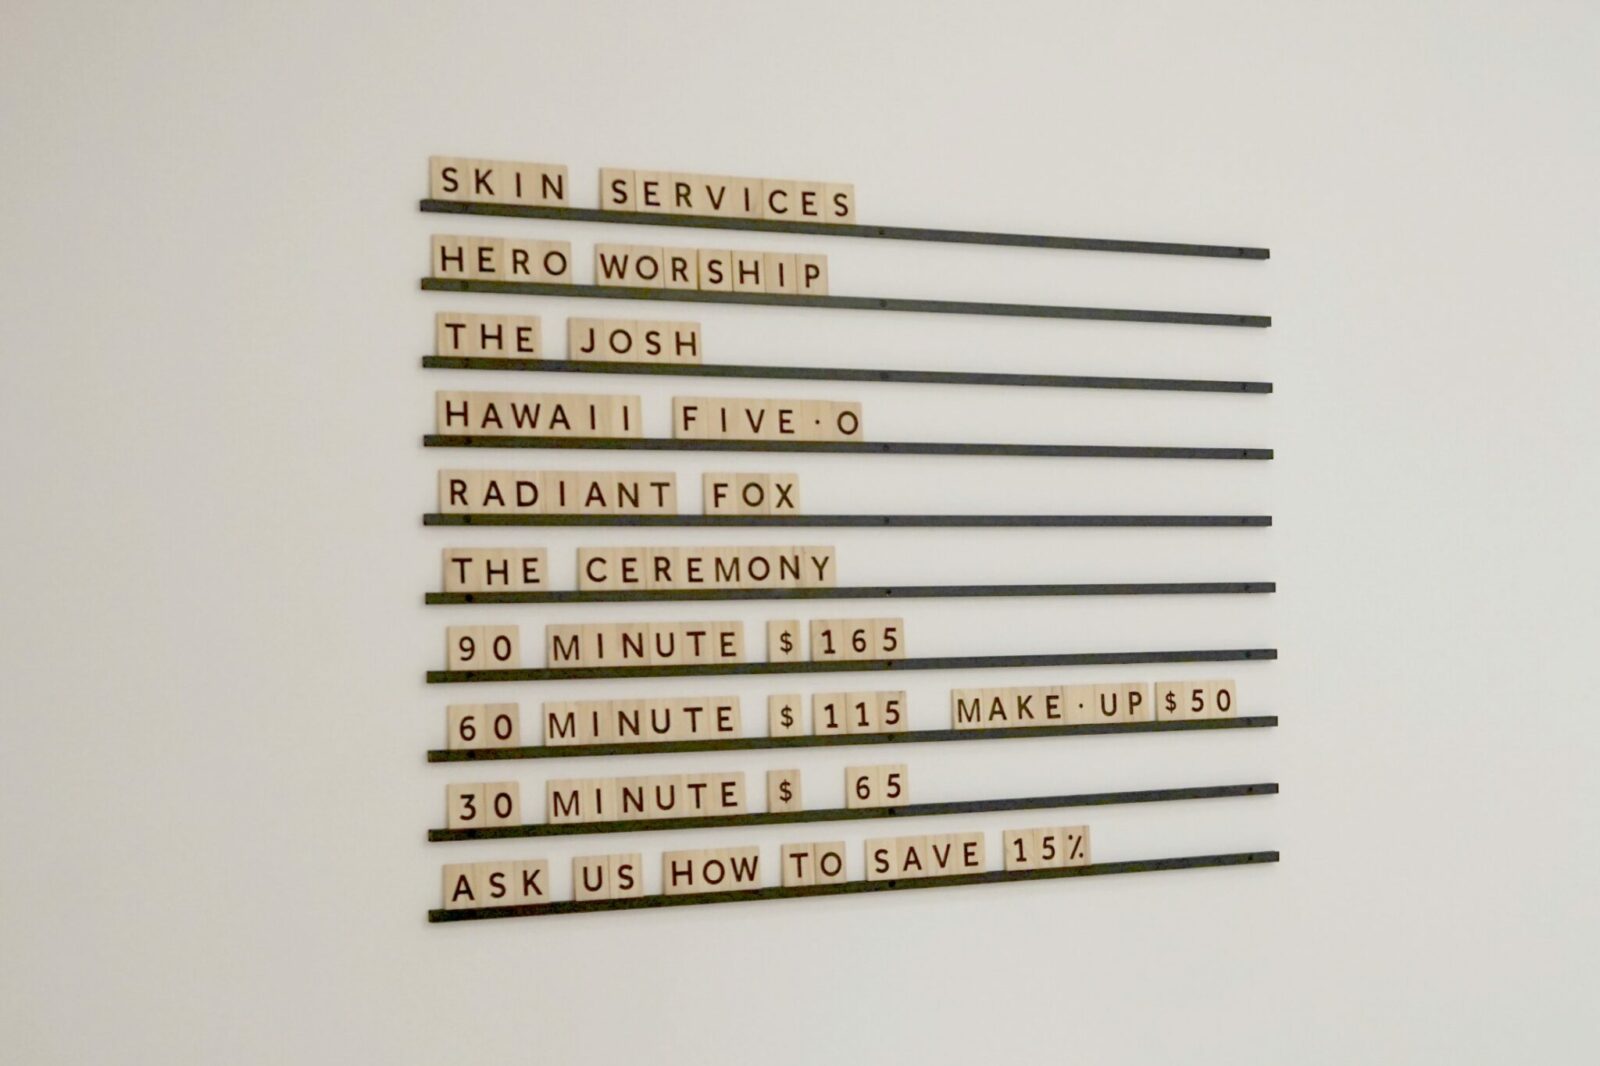 SKIN SERVICES
HERO WORSHIP
THE JOSH
HAWAII FIVE·O
RADIANT FOX
THE CEREMONY
90 MINUTE $165
60 MINUTE $115 MAKE·UP $50
30 MINUTE $ 65
ASK US HOW TO SAVE 15%